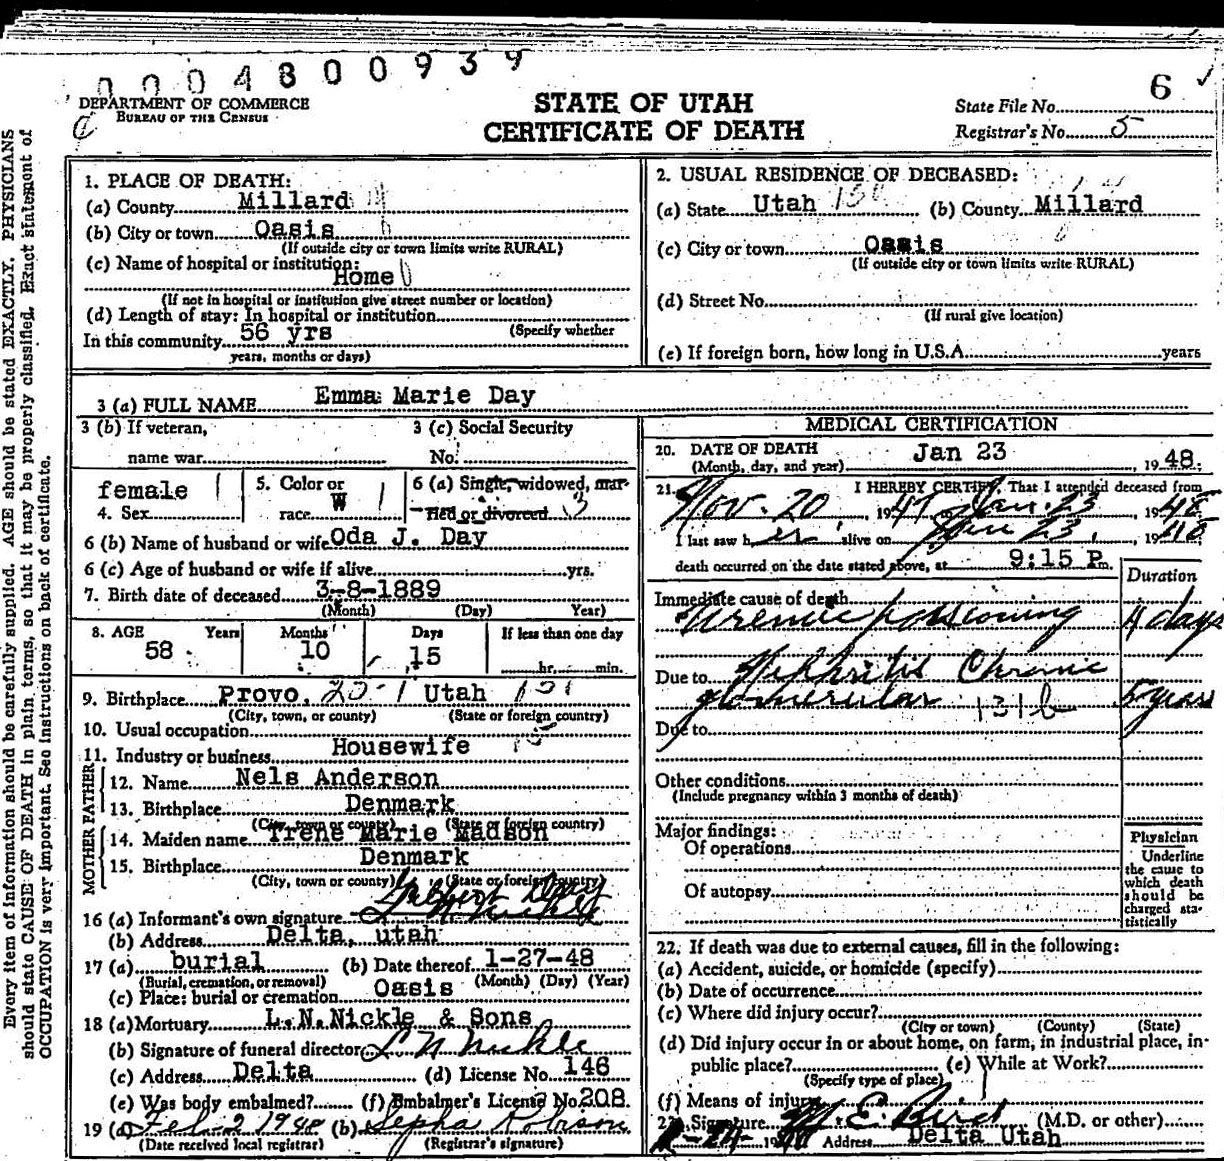 0004800939
DEPARTMENT OF COMMERCE
BUREAU OF THE CENSUS
STATE OF UTAH
CERTIFICATE OF DEATH
6
State File No.
Registrar's No. 5
Every item of information should be carefully supplied. AGE should be stated EXACTLY. PHYSICIANS
should state CAUSE OF DEATH in plain terms, so that it may be properly classified. Exact statement of
OCCUPATION is very important. See instructions on back of certificate.
1. PLACE OF DEATH:
(a) County Millard
(b) City or town Oasis
(If outside city or town limits write RURAL)
(c) Name of hospital or institution:
Home
(If not in hospital or institution give street number or location)
(d) Length of stay: In hospital or institution
(Specify whether
In this community 56 yrs
years, months or days)
2. USUAL RESIDENCE OF DECEASED:
(a) State Utah (b) County Millard
(c) City or town Oasis
(If outside city or town limits write RURAL)
(d) Street No.
(If rural give location)
(e) If foreign born, how long in U.S.A. years
3 (a) FULL NAME Emma Marie Day
3 (b) If veteran,
name war
3 (c) Social Security
No.
female
4. Sex
5. Color or
race W
6 (a) Single, widowed, mar-
ried or divorced 3
6 (b) Name of husband or wife Oda J. Day
6 (c) Age of husband or wife if alive yrs.
7. Birth date of deceased 3-8-1889
(Month) (Day) Year)
8. AGE Years Months Days If less than one day
58 10 15 hr. min.
9. Birthplace Provo, Utah
(City, town, or county) (State or foreign country)
10. Usual occupation
Housewife
11. Industry or business
FATHER
12. Name Nels Anderson
13. Birthplace Denmark
(City, town or county) (State or foreign country)
MOTHER
14. Maiden name Trene Marie Madson
15. Birthplace Denmark
(City, town or county) (State or foreign country)
16 (a) Informant's own signature
(b) Address Delta, utah
17 (a) burial (b) Date thereof 1-27-48
(Burial, cremation, or removal) (Month) (Day) (Year)
(c) Place: burial or cremation Oasis
18 (a) Mortuary L.N.Nickle & Sons
(b) Signature of funeral director L N Nickle
(c) Address Delta (d) License No. 146
(e) Was body embalmed? (f) Embalmer's License No. 208
19 (a) Feb-2 1948 (b) Sepha Robison
(Date received local registrar) (Registrar's signature)
MEDICAL CERTIFICATION
20. DATE OF DEATH Jan 23
(Month, day, and year) , 1948
21. I HEREBY CERTIFY, That I attended deceased from
Nov. 20, 1947 Jan. 23, 1948
I last saw her alive on Jan 23, 1948
death occurred on the date stated above, at 9:15 P m.
Duration
Immediate cause of death
Uremic poisoning 4 days
Due to Nephritis Chronic
glomerular 131b 5 years
Due to
Other conditions
(Include pregnancy within 3 months of death)
Major findings:
Of operations
Of autopsy
Physician
Underline
the cause to
which death
should be
charged sta-
tistically
22. If death was due to external causes, fill in the following:
(a) Accident, suicide, or homicide (specify)
(b) Date of occurrence
(c) Where did injury occur?
(City or town) (County) (State)
(d) Did injury occur in or about home, on farm, in industrial place, in-
public place? (e) While at Work?
(Specify type of place)
(f) Means of injury
23. Signature M E Bird (M.D. or other)
Address Delta Utah